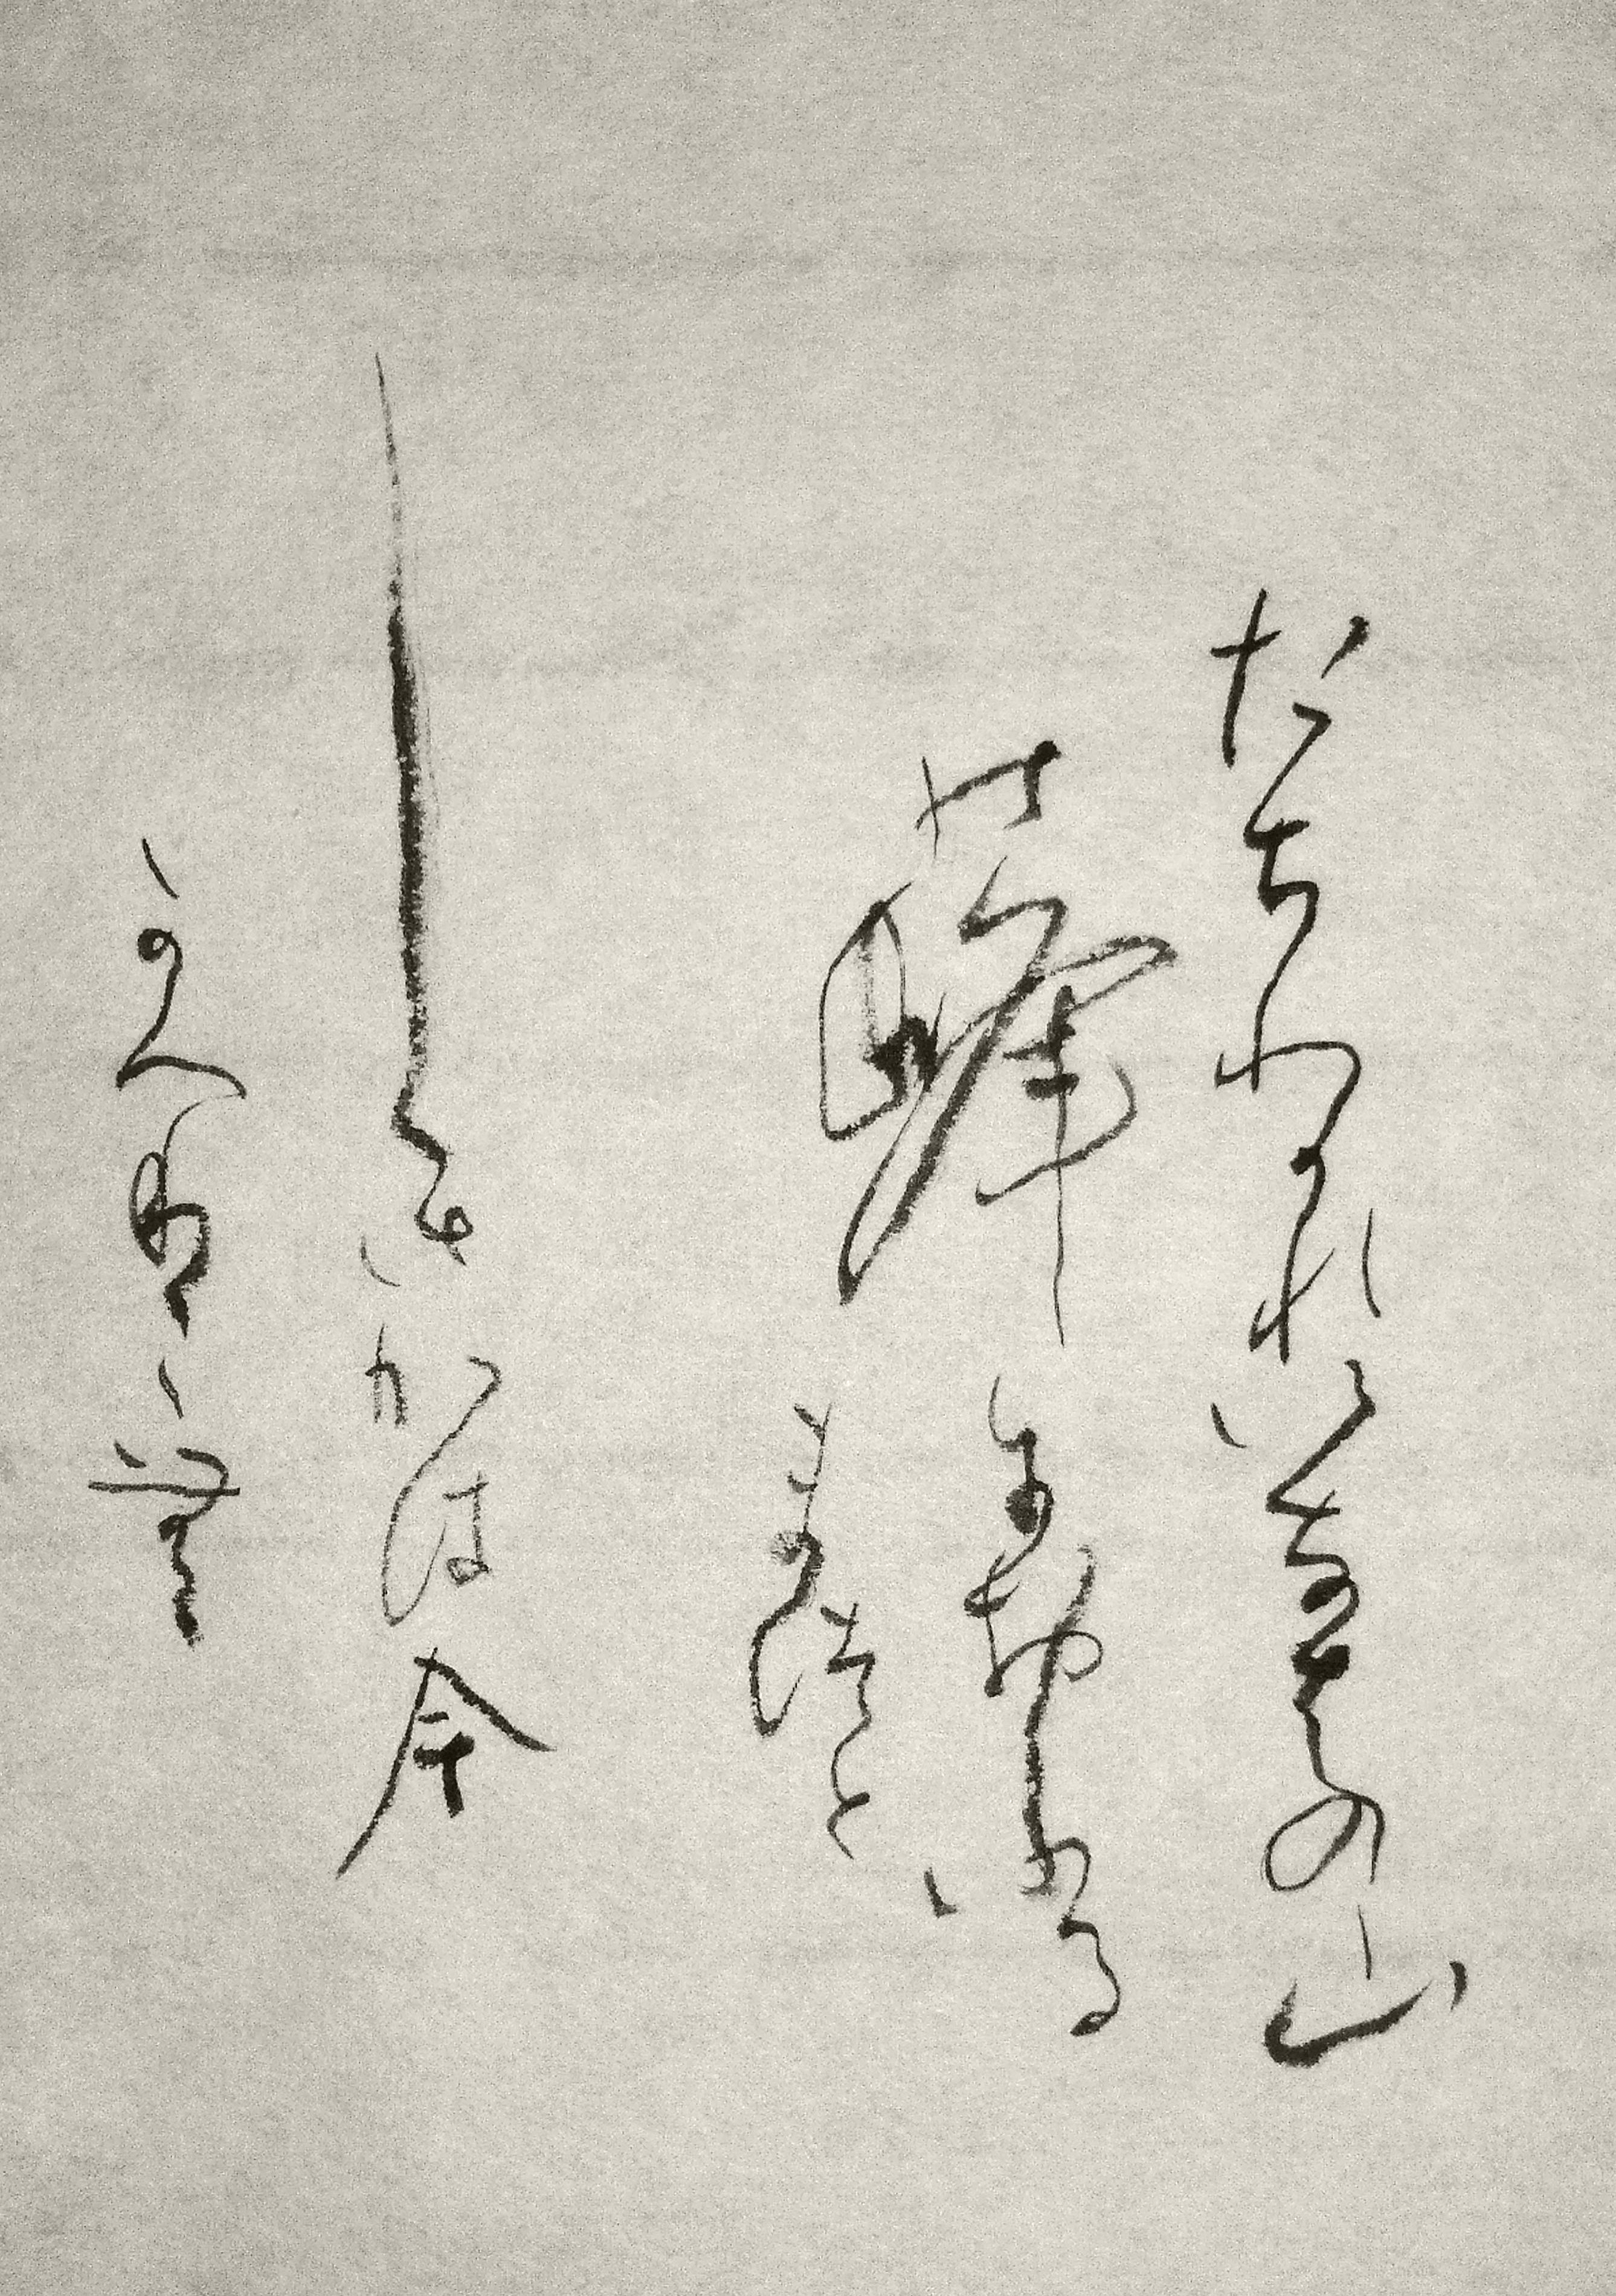 たちわかれいなはの山
の峰におふる
まつと
しきかは今
かへり